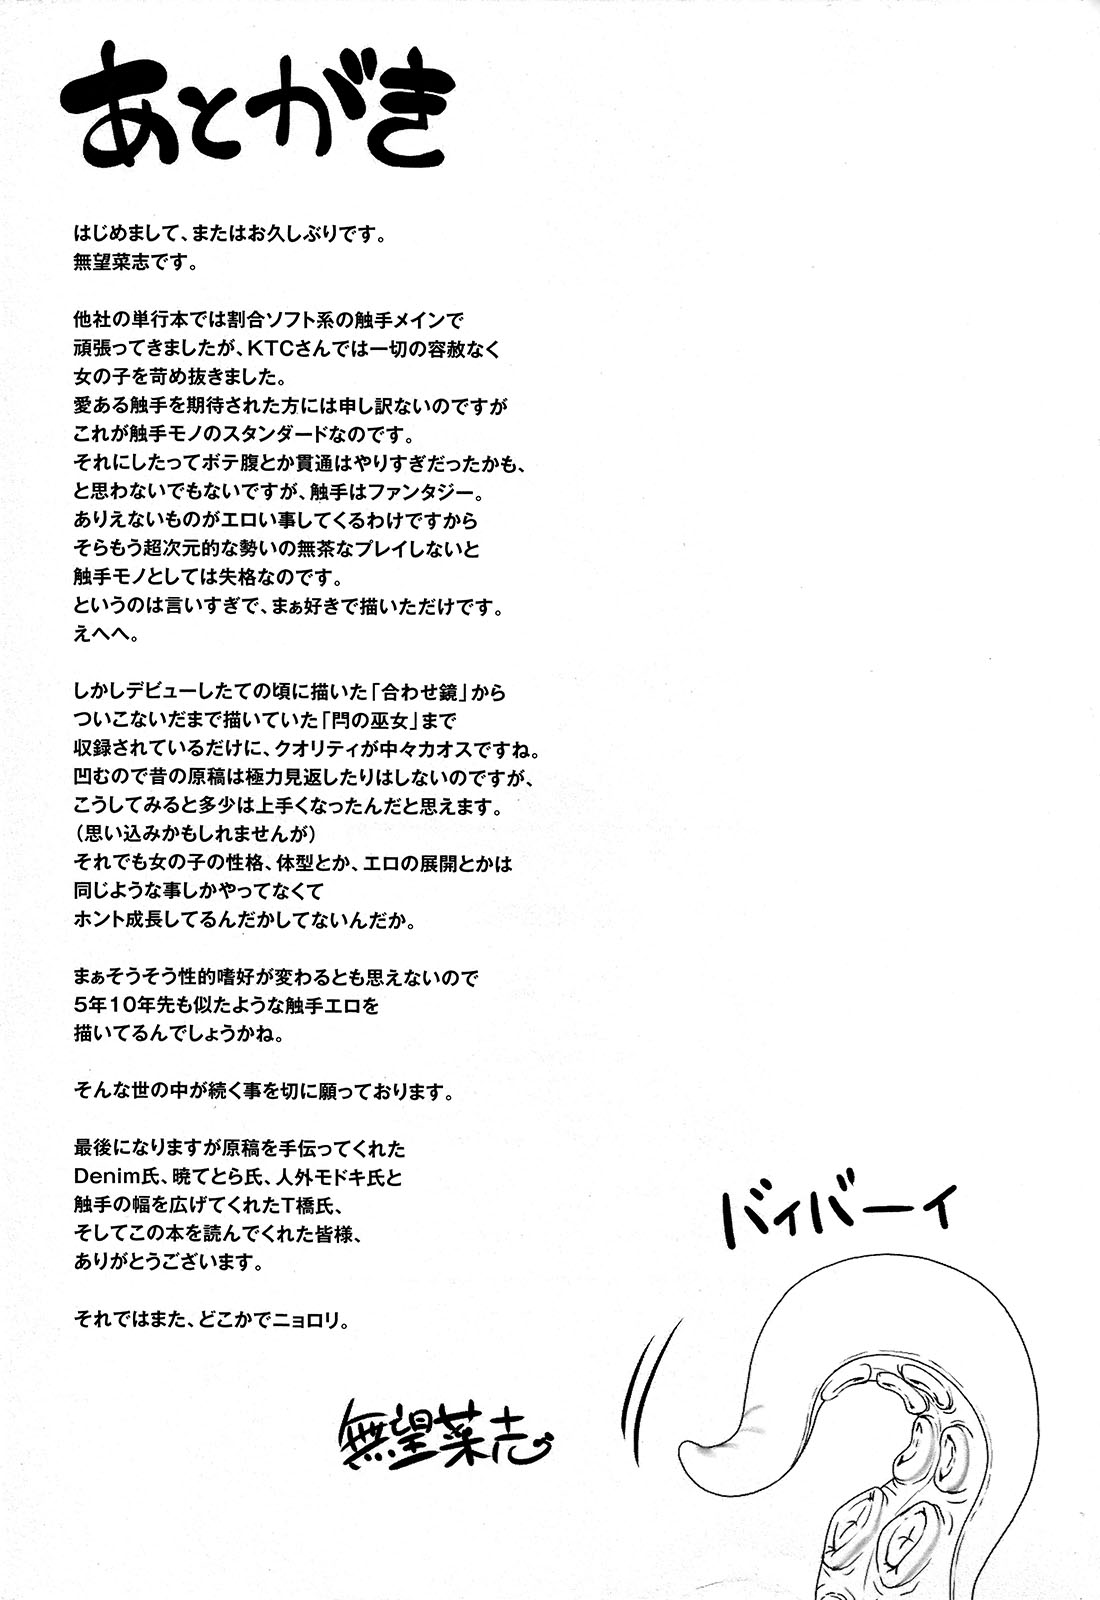 あとがき
はじめまして、またはお久しぶりです。
無望菜志です。
他社の単行本では割合ソフト系の触手メインで
頑張ってきましたが、KTCさんでは一切の容赦なく
女の子を苛め抜きました。
愛ある触手を期待された方には申し訳ないのですが
これが触手モノのスタンダードなのです。
それにしたってボテ腹とか貫通はやりすぎだったかも、
と思わないでもないですが、触手はファンタジー。
ありえないものがエロい事してくるわけですから
そらもう超次元的な勢いの無茶なプレイしないと
触手モノとしては失格なのです。
というのは言いすぎで、まぁ好きで描いただけです。
えへへ。
しかしデビューしたての頃に描いた「合わせ鏡」から
ついこないだまで描いていた「閂の巫女」まで
収録されているだけに、クオリティが中々カオスですね。
凹むので昔の原稿は極力見返したりはしないのですが、
こうしてみると多少は上手くなったんだと思えます。
（思い込みかもしれませんが）
それでも女の子の性格、体型とか、エロの展開とかは
同じような事しかやってなくて
ホント成長してるんだかしてないんだか。
まぁそうそう性的嗜好が変わるとも思えないので
5年10年先も似たような触手エロを
描いてるんでしょうかね。
そんな世の中が続く事を切に願っております。
最後になりますが原稿を手伝ってくれた
Denim氏、暁てとら氏、人外モドキ氏と
触手の幅を広げてくれたT橋氏、
そしてこの本を読んでくれた皆様、
ありがとうございます。
それではまた、どこかでニョロリ。
無望菜志
バイバーイ